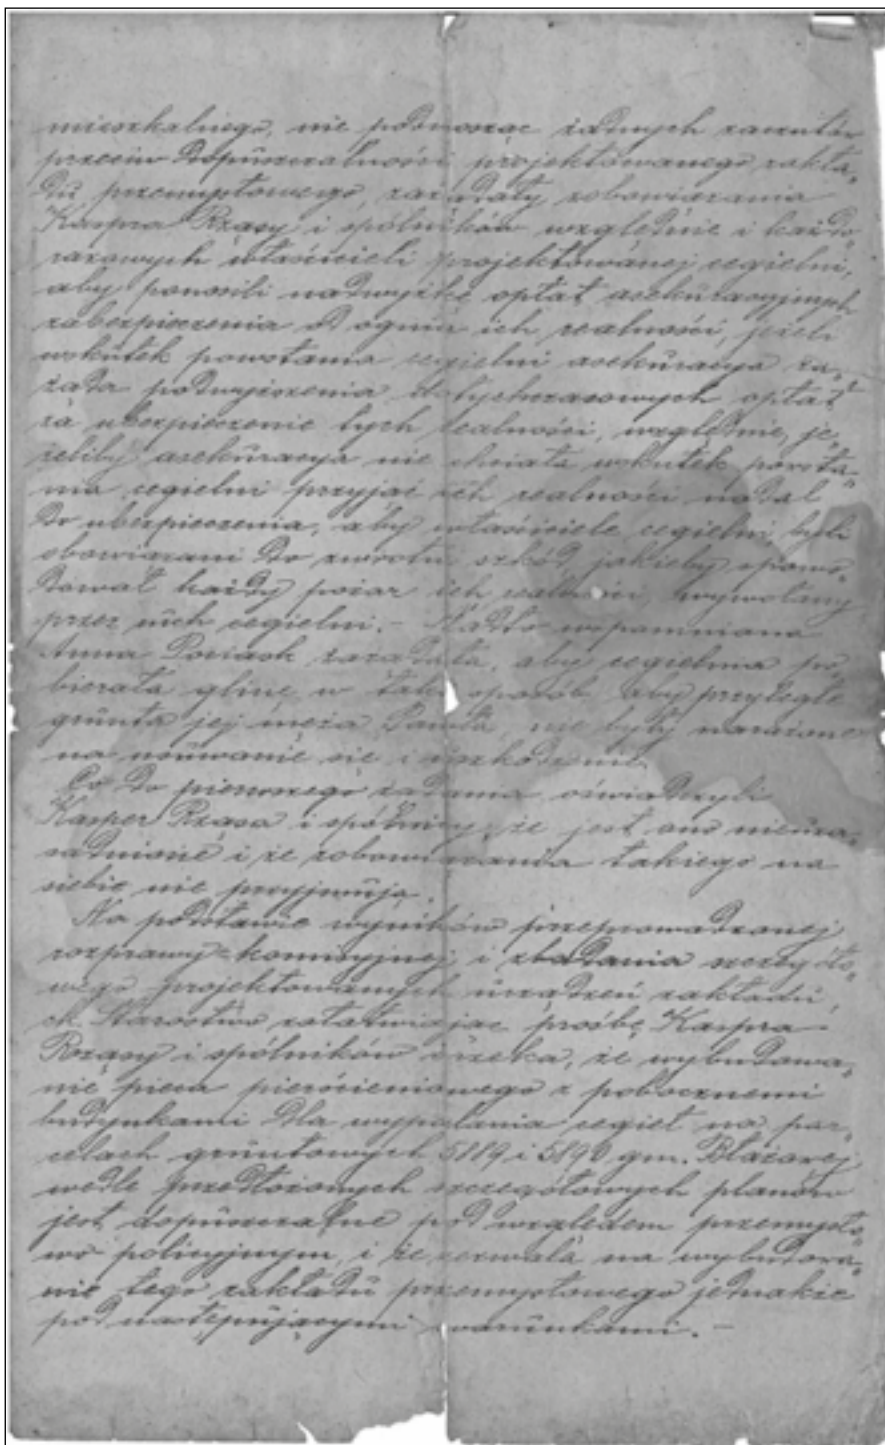 mieszkalnego, nie podnosząc żadnych zarzutów
przeciw dopuszczalności projektowanego zakła„
du przemysłowego, zażądały zobowiązania
Kaspra Rząsy i spólników względnie i każdo„
razowych właścicieli projektowanej cegielni,
aby ponosili nadwyżkę opłat asekuracyjnych
zabezpieczenia od ognia ich realności, jeżeli
wskutek powstania cegielni asekuracya za„
żąda podwyższenia dotychczasowych opłat
za ubezpieczenie tych realności, względnie, je„
żeliby asekuracya nie chciała wskutek powsta„
nia cegielni przyjąć ich realności nadal
do ubezpieczenia, aby właściciele cegielni byli
obowiązani do zwrotu szkód jakieby spowo„
dował każdy pożar ich realności, wywołany
przez nich cegielni. – Nadto wspomniana
Anna Pociask zażądała, aby cegielnia po„
bierała glinę w taki sposób, aby przyległe
grunta jej męża Pawła, nie były narażone
na usuwanie się i uszkodzenie.
Co do pierwszego żądania oświadczyli
Kasper Rząsa i spólnicy, że jest ono nieuza„
sadnione i że zobowiązania takiego na
siebie nie przyjmują.
Na podstawie wyników przeprowadzonej
rozprawy komisyjnej i zbadania szczegóło„
wego projektowanych urządzeń zakładu,
ck. Starostwo załatwiając prośbę Kaspra
Rząsy i spólników orzeka, że wybudowa„
nie pieca pierścieniowego z pobocznemi
budynkami dla wypalania cegieł na par„
celach gruntowych 5889 i 5890 gm. Błażowej
wedle przedłożonych szczegółowych planów
jest dopuszczalne pod względem przemysło„
wo policyjnym, i że zezwala na wybudowa„
nie tego zakładu przemysłowego jednakże
pod następującymi warunkami. –